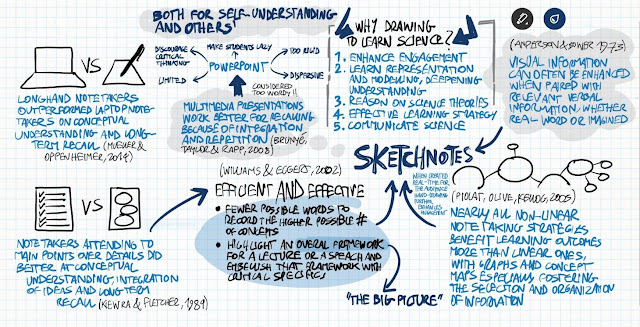 BOTH FOR SELF-UNDERSTANDING
AND OTHERS'
VS
LONGHAND NOTETAKERS
OUTPERFORMED LAPTOP NOTE-
TAKERS ON CONCEPTUAL
UNDERSTANDING AND LONG-
TERM RECALL (MUELLER &
OPPENHEIMER, 2014)
DISCOURAGE
CRITICAL
THINKING
MAKE STUDENTS LAZY
TOO RIGID
POWERPOINT
LIMITED
DISPERSIVE
CONSIDERED
TOO WORDY!!
MULTIMEDIA PRESENTATIONS
WORK BETTER FOR RECALLING
BECAUSE OF INTEGRATION
AND REPETITION (BRUNYÉ,
TAYLOR & RAPP, 2008)
WHY DRAWING
TO LEARN SCIENCE?
1. ENHANCE ENGAGEMENT
2. LEARN REPRESENTATION
AND MODELING, DEEPENING
UNDERSTANDING
3. REASON ON SCIENCE THEORIES
4. EFFECTIVE LEARNING STRATEGY
5. COMMUNICATE SCIENCE
(ANDERSON & BOWER 1973)
VISUAL INFORMATION
CAN OFTEN BE ENHANCED
WHEN PAIRED WITH
RELEVANT VERBAL
INFORMATION. WHETHER
REAL-WORD OR IMAGINED
SKETCHNOTES
WHEN CREATED
REAL-TIME FOR
THE AUDIENCE
HAND-DRAWING
FURTHER
ENHANCES
ENGAGEMENT
VS
NOTETAKERS ATTENDING TO
MAIN POINTS OVER DETAILS DID
BETTER AT CONCEPTUAL
UNDERSTANDING, INTEGRATION
OF IDEAS AND LONG-TERM
RECALL (KIEWRA & FLETCHER, 1984)
(WILLIAMS & EGGERT, 2002)
EFFICIENT AND EFFECTIVE
• FEWER POSSIBLE WORDS TO
RECORD THE HIGHER POSSIBLE #
OF CONCEPTS
• HIGHLIGHT AN OVERAL FRAMEWORK
FOR A LECTURE OR A SPEACH AND
EMBELLISH THAT FRAMEWORK WITH
CRITICAL SPECIFICS
"THE BIG PICTURE"
(PIOLAT, OLIVE, KELLOGG, 2005)
NEARLY ALL NON-LINEAR
NOTE TAKING STRATEGIES
BENEFIT LEARNING OUTCOMES
MORE THAN LINEAR ONES,
WITH GRAPHS AND CONCEPT
MAPS ESPECIALLY FOSTERING
THE SELECTION AND ORGANIZATION
OF INFORMATION